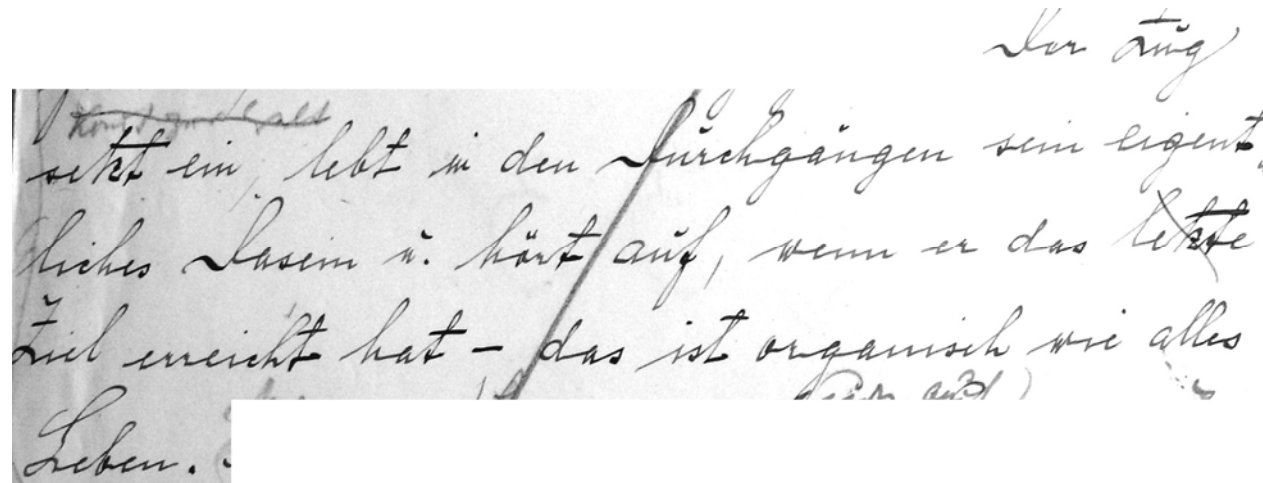 Der Zug
setzt ein, lebt in den Durchgängen sein eigent„
liches Dasein u. hört auf, wenn er das letzte
Ziel erreicht hat – das ist organisch wie alles
Leben.